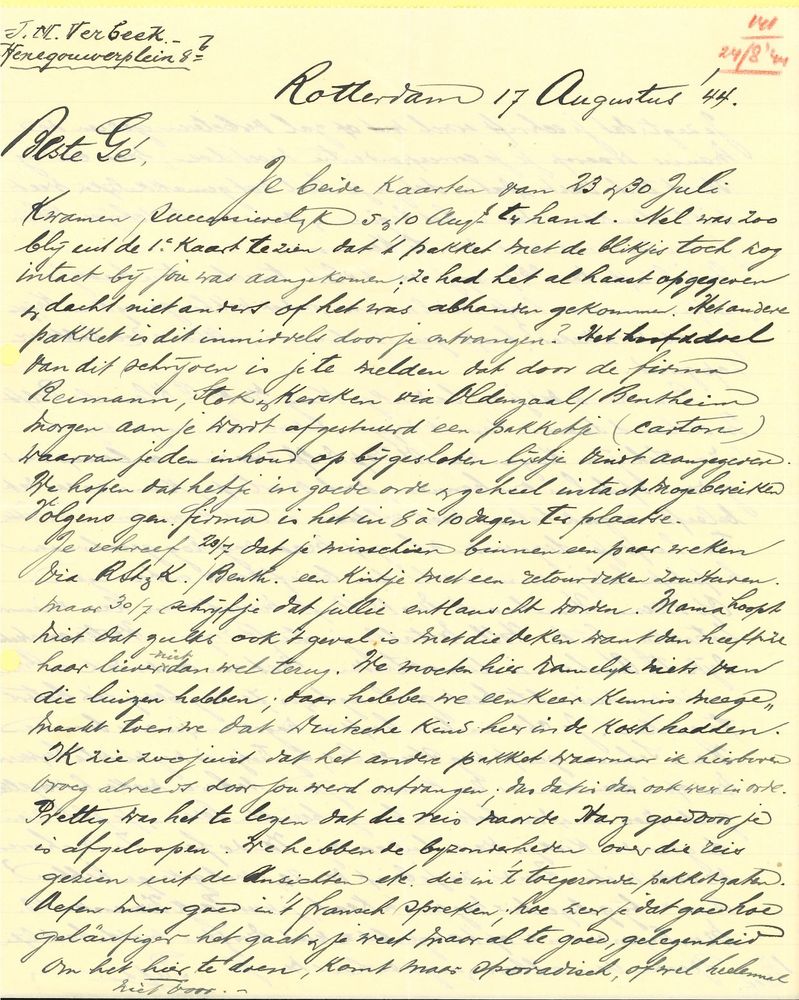 J.M. Verbeek.-
Henegouwerplein 8b
141
24/8 '44
Rotterdam 17 Augustus '44.
Beste Gé,
Je beide kaarten van 23 & 30 Juli
kwamen successievelijk 5 & 10 Augs ter hand. Nel was zoo
blij uit de 1e kaart te zien dat 't pakket met de blikjes toch nog
intact bij jou was aangekomen; ze had het al haast opgegeven
& dacht niet anders of het was abhanden gekommen. Het andere
pakket is dit inmiddels door je ontvangen? Het hoofddoel
van dit schrijven is je te melden dat door de firma
Reimann, Stok & Kercken via Oldenzaal/Bentheim
morgen aan je wordt afgestuurd een pakketje (carton)
waarvan je den inhoud op bijgesloten lijstje vindt aangegeven.
We hopen dat het je in goede orde & geheel intact moge bereiken
Volgens gen. firma is het in 8 à 10 dagen ter plaatse.
Je schreef 23/7 dat je misschien binnen een paar weken
via RSt&K./Benth. een kistje met een retourdeken zou sturen.
maar 30/7 schrijf je dat jullie entlauscht worden. Mama hoopt
niet dat zulks ook 't geval is met die deken want dan heeft ze
haar liever niet dan wel terug. We moeten hier namelijk niets van
die luizen hebben; daar hebben we een keer kennis meege"
maakt toen we dat Duitsche kind hier in de kost hadden.
Ik zie zoojuist dat het andere pakket waarnaar ik hierboven
vroeg alreeds door jou werd ontvangen; dus dat is dan ook weer in orde.
Prettig was het te lezen dat die reis naar de Harz goed door je
is afgeloopen. We hebben de bijzonderheden over die reis
gezien uit de Ansichten etc. die in 't toegezonden pakket zaten.
Oefen maar goed in 't fransch spreken, hoe meer je dat goed hoe
geläufiger het gaat & je weet maar al te goed, gelegenheid
om het hier te doen, komt maar sporadisch, of wel heelemaal
niet voor. -